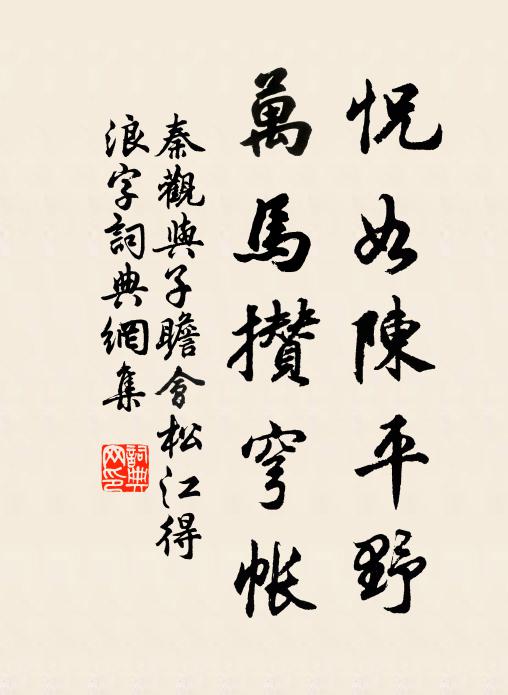 怳如陳平野
萬馬攢穹帳
秦觀與子瞻會松江得
浪字詞典網集
詞典网印